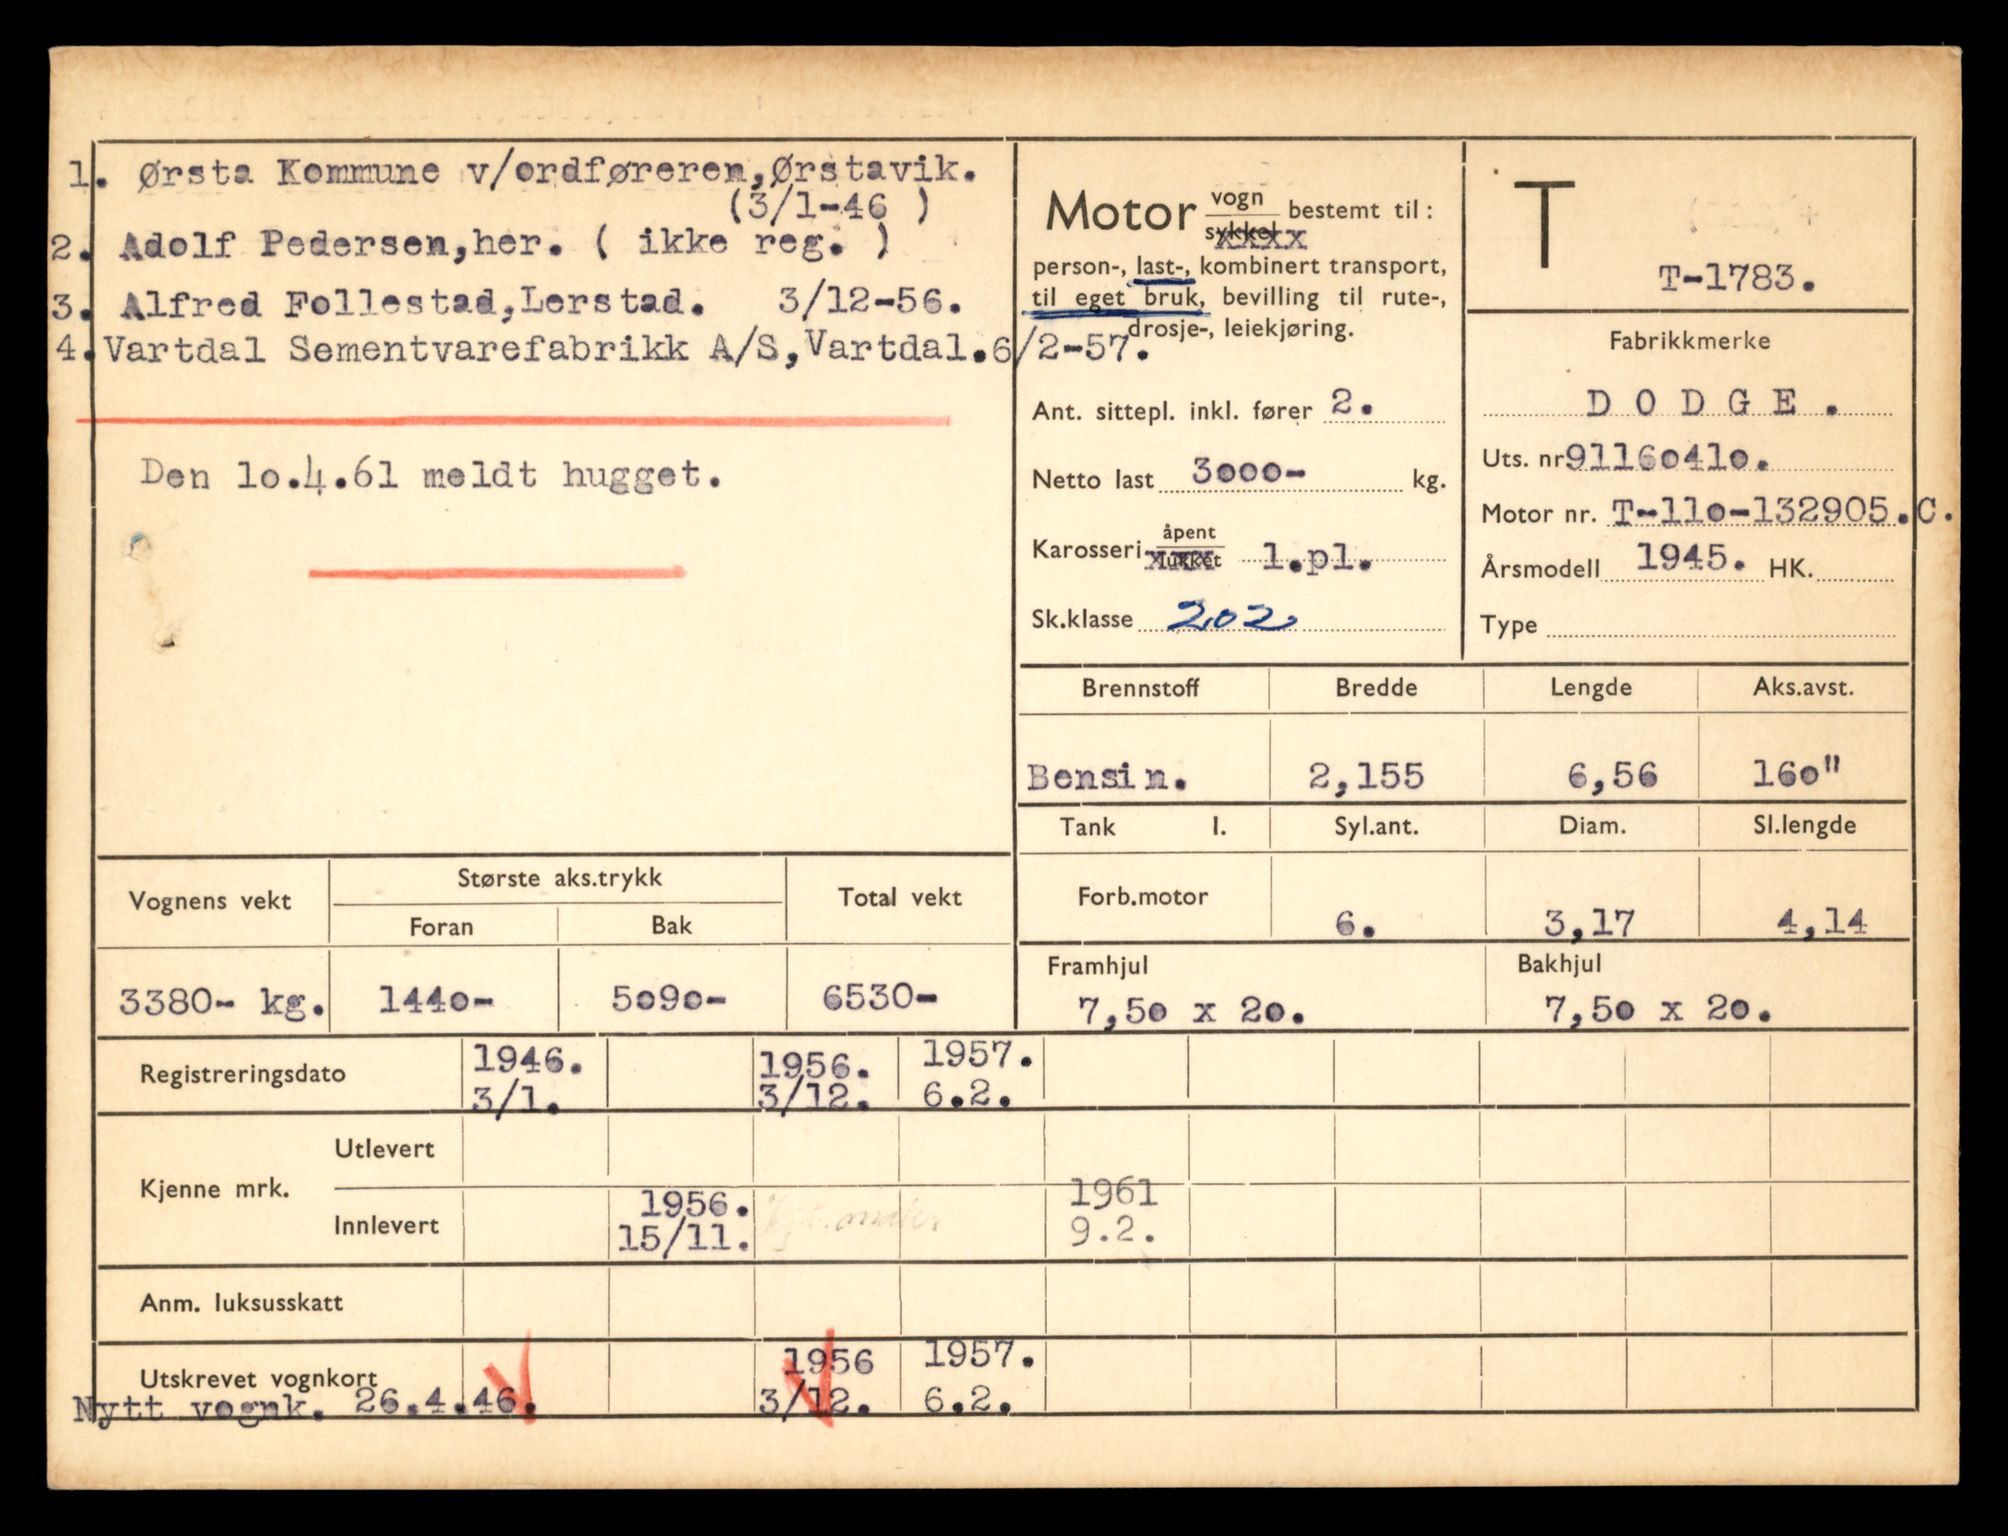 1. Ørsta Kommune v/ordføreren,Ørstavik.
(3/1-46 )
2. Adolf Pedersen,her. ( ikke reg. )
3. Alfred Follestad,Lerstad. 3/12-56.
4. Vartdal Sementvarefabrikk A/S,Vartdal.6/2-57.
Den 1o.4.61 meldt hugget.
Motor vogn bestemt til:
sykkel xxxx
person-, last-, kombinert transport,
til eget bruk, bevilling til rute-,
drosje-, leiekjøring.
Ant. sittepl. inkl. fører 2.
Netto last 3ooo- kg.
Karosseri åpent
lukket xxx 1.pl.
Sk.klasse 202
T
T-1783.
Fabrikkmerke
D O D G E .
Uts. nr 9116o41o.
Motor nr. T-11o-132905.C.
Årsmodell 1945. HK.
Type
Brennstoff Bredde Lengde Aks.avst.
Bensin. 2,155 6,56 16o"
Tank l. Syl.ant. Diam. Sl.lengde
Forb.motor 6. 3,17 4,14
Framhjul Bakhjul
7,5o x 2o. 7,5o x 2o.
Vognens vekt Største aks.trykk Total vekt
Foran Bak
3380- kg. 144o- 5o9o- 6530-
Registreringsdato 1946. 1956. 1957.
3/1. 3/12. 6.2.
Utlevert
Kjenne mrk.
Innlevert 1956. 1961
15/11. 9.2.
Anm. luksusskatt
Utskrevet vognkort 1956 1957.
Nytt vognk. 26.4.46. 3/12. 6.2.